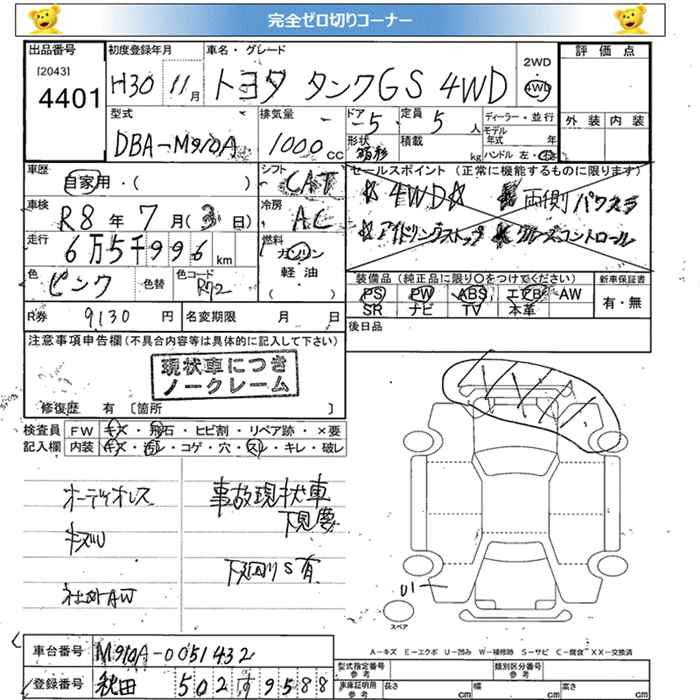 完全ゼロ切りコーナー
出品番号 初度登録年月 車名・グレード 2WD 評価点
[2043] 4401 H30 11月 トヨタ タンクGS 4WD 4WD
外装 内装
型式 排気量 ドア 定員 ディーラー・並行
DBA-M910A 1000cc 5 5人 モデル年式 年
形状 箱形 積載 kg ハンドル 左・右
車歴 自家用・( ) シフト CAT セールスポイント (正常に機能するものに限ります)
☆4WD☆ ☆両側パワスラ
車検 R8年7月(3日) 冷房 AC
☆アイドリングストップ ☆クルーズコントロール
走行 6万5千996km 燃料 ガソリン
軽油
( )
色 ピンク 色替 色コード R72
装備品 (純正品に限り○をつけてください) 新車保証書
PS PW ABS エアB AW 有・無
SR ナビ TV 本革
R券 9130円 名変期限 月 日 後日品
注意事項申告欄(不具合内容等は具体的に記入して下さい)
現状車につき
ノークレーム
修復歴 有 〔箇所 〕
検査員 FW キズ・飛石・ヒビ割・リペア跡・×要
記入欄 内装 キズ・汚レ・コゲ・穴・スレ・キレ・破レ
オーディオレス 事故現状車
下見要
キズU
下回りS有
社外AW
U1
スペア
A-キズ E-エクボ U-凹み W-補修跡 S-サビ C-腐食 XX-交換済
車台番号 M910A-0051432
型式指定番号 参考 類別区分番号 参考
登録番号 秋田 502 す 9588
車庫証明用 参考 長さ cm 幅 cm 高さ cm